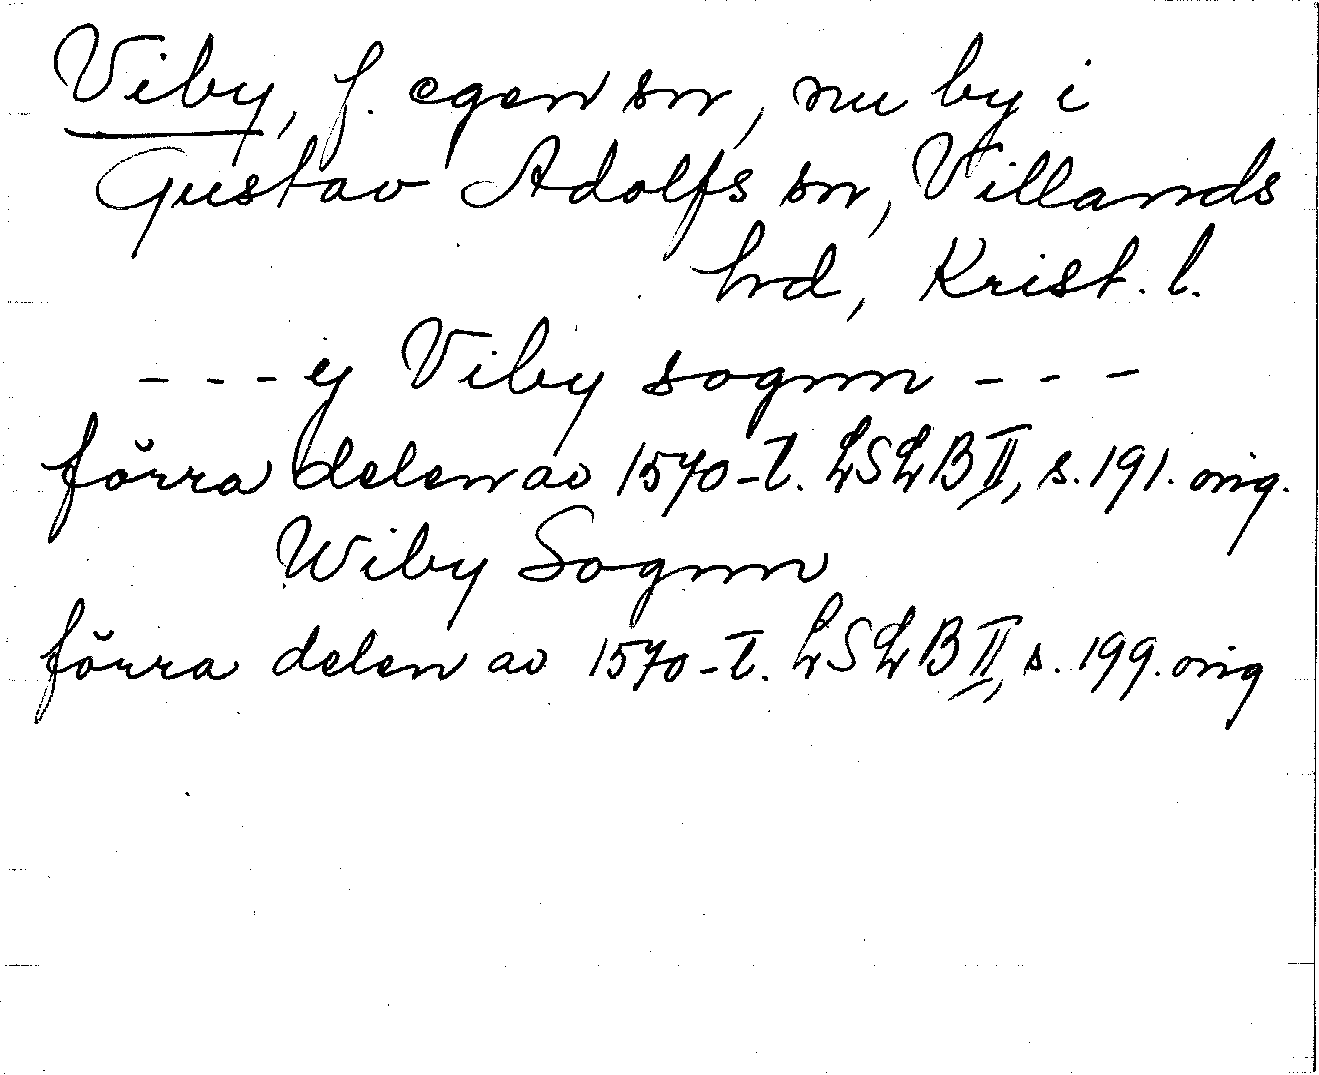 Viby, f. egen sn, nu by i
Gustav Adolfs sn, Villands
hd, Krist. l.
- - - y Viby sognn - - -
förra delen av 1570-t. LSLB II, s. 191. orig.
Wiby Sognn
förra delen av 1570-t. LSLB II, s. 199. orig